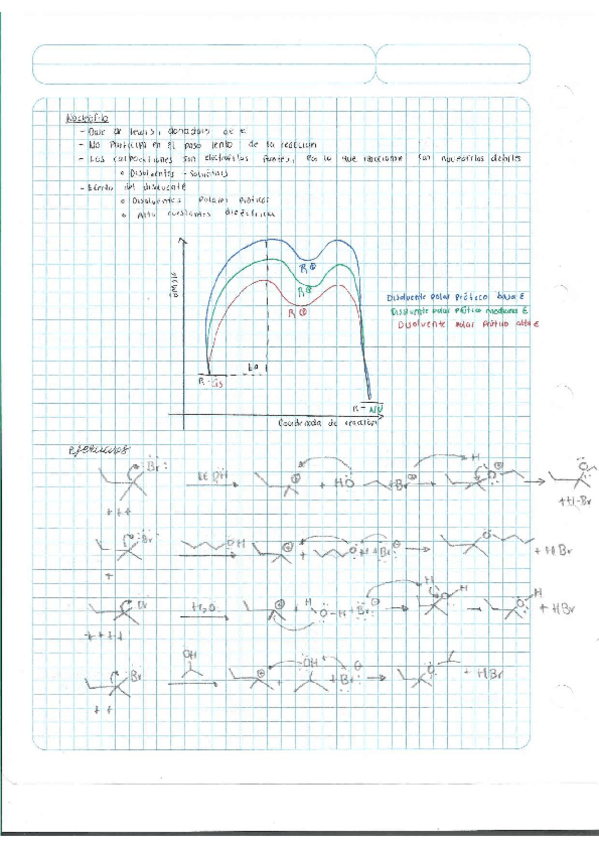 Nucleófilo
- Base de lewis, donadora de e
- No participa en el paso lento de la reacción
- Los carbocationes son electrófilos fuertes, por lo que reaccionan con nucleófilos débiles
o Disolventes - Solvólisis
- Efecto del disolvente
o Disolventes polares próticos
o Alta constantes dieléctrica
R⊕
R⊕
R⊕
Disolvente polar prótico baja ε
Disolvente polar prótico mediana ε
Disolvente polar prótico alta ε
Ea
R-
R-NU
Coordenada de reacción
Ejercicios
Br OH + HO + Br H O
+++ + H-Br
Br OH + O H + Br O + HBr
+
Br H2O + H O-H + Br H O H O H + HBr
++++
Br OH + OH + Br O + HBr
++